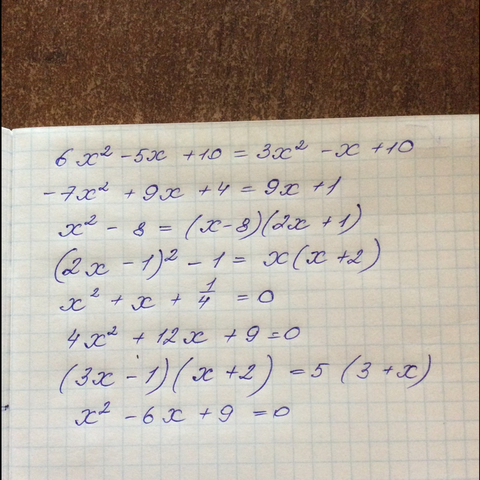 6x² - 5x + 10 = 3x² - x + 10
-7x² + 9x + 4 = 9x + 1
x² - 8 = (x-8)(2x + 1)
(2x - 1)² - 1 = x(x+2)
x² + x + 1/4 = 0
4x² + 12x + 9 = 0
(3x - 1)(x + 2) = 5(3 + x)
x² - 6x + 9 = 0